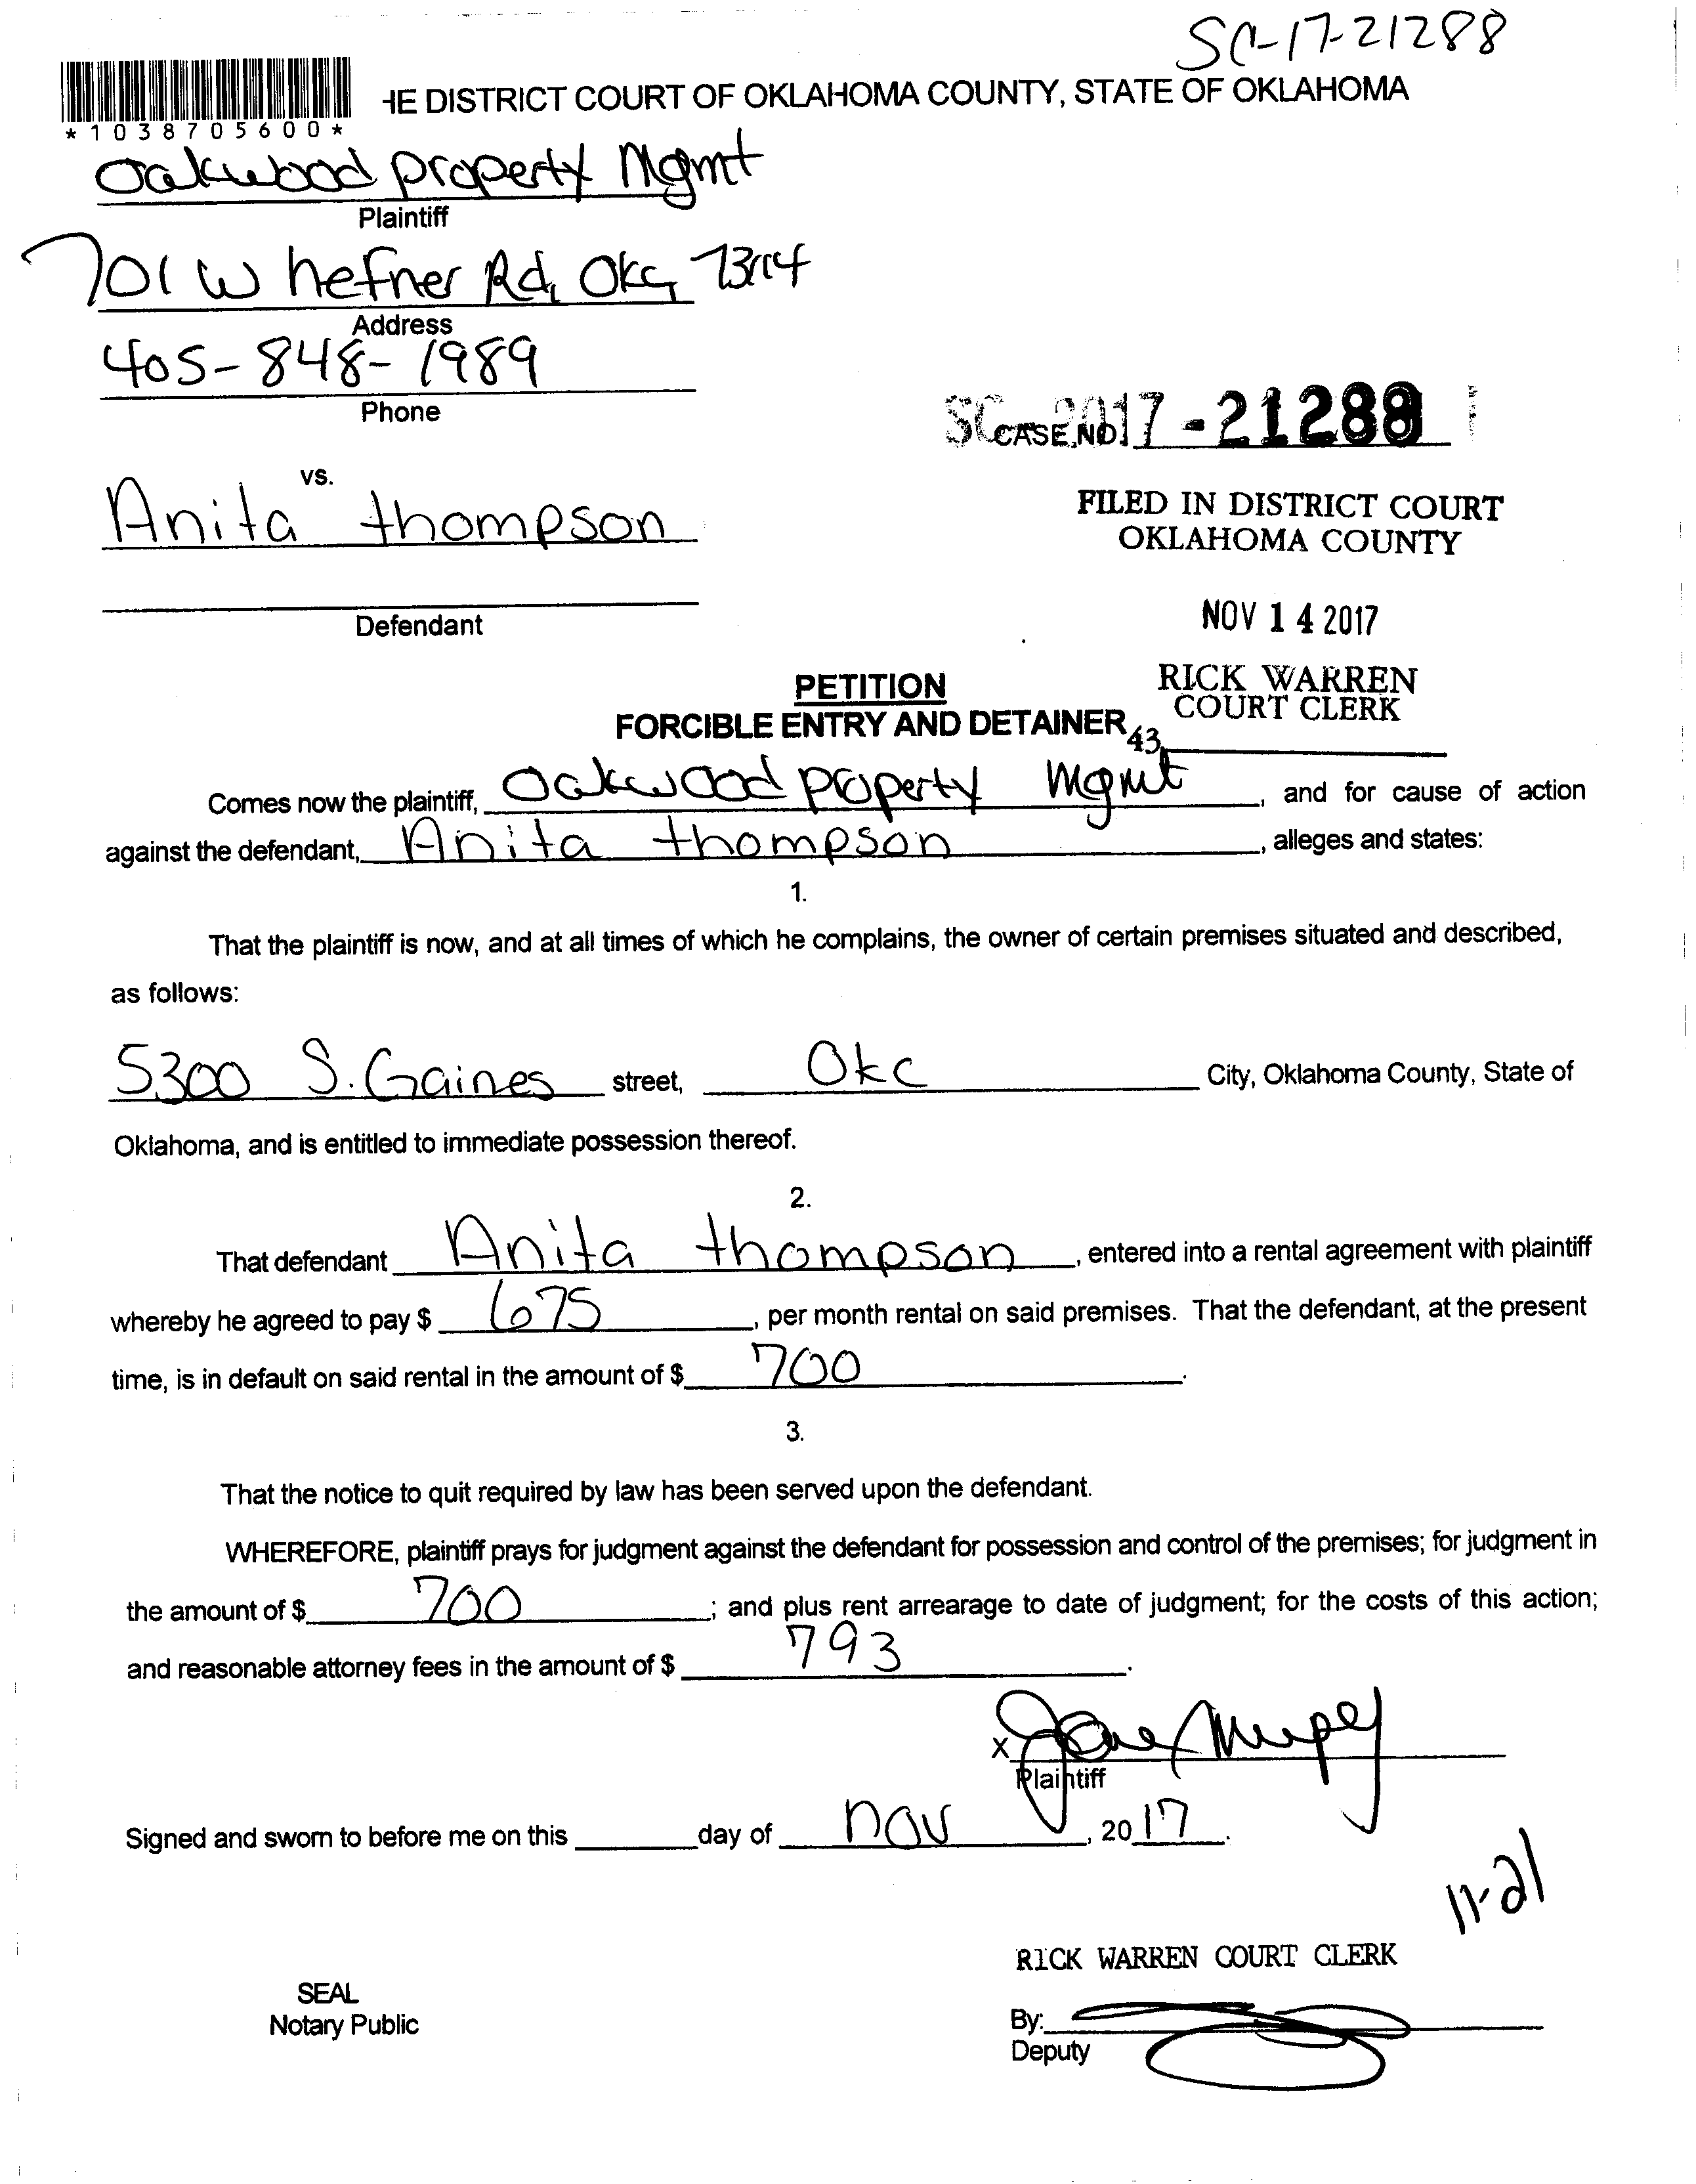 SC-17-21288
HE DISTRICT COURT OF OKLAHOMA COUNTY, STATE OF OKLAHOMA
*1038705600*
Oakwood property Mgmt
Plaintiff
701 W hefner Rd, Okc, 73114
Address
405-848-1989
Phone
SC-2017-21288
CASE NO.
vs.
Anita thompson
FILED IN DISTRICT COURT
OKLAHOMA COUNTY
Defendant
NOV 14 2017
PETITION
RICK WARREN
COURT CLERK
FORCIBLE ENTRY AND DETAINER
43
Comes now the plaintiff, Oakwood property Mgmt, and for cause of action
against the defendant, Anita thompson, alleges and states:
1.
That the plaintiff is now, and at all times of which he complains, the owner of certain premises situated and described,
as follows:
5300 S. Gaines street, Okc City, Oklahoma County, State of
Oklahoma, and is entitled to immediate possession thereof.
2.
That defendant Anita thompson, entered into a rental agreement with plaintiff
whereby he agreed to pay $ 675, per month rental on said premises. That the defendant, at the present
time, is in default on said rental in the amount of $ 700.
3.
That the notice to quit required by law has been served upon the defendant.
WHEREFORE, plaintiff prays for judgment against the defendant for possession and control of the premises; for judgment in
the amount of $ 700; and plus rent arrearage to date of judgment; for the costs of this action;
and reasonable attorney fees in the amount of $ 793.
X
Plaintiff
Signed and sworn to before me on this day of nov, 2017.
11-21
RICK WARREN COURT CLERK
SEAL
Notary Public
By:
Deputy